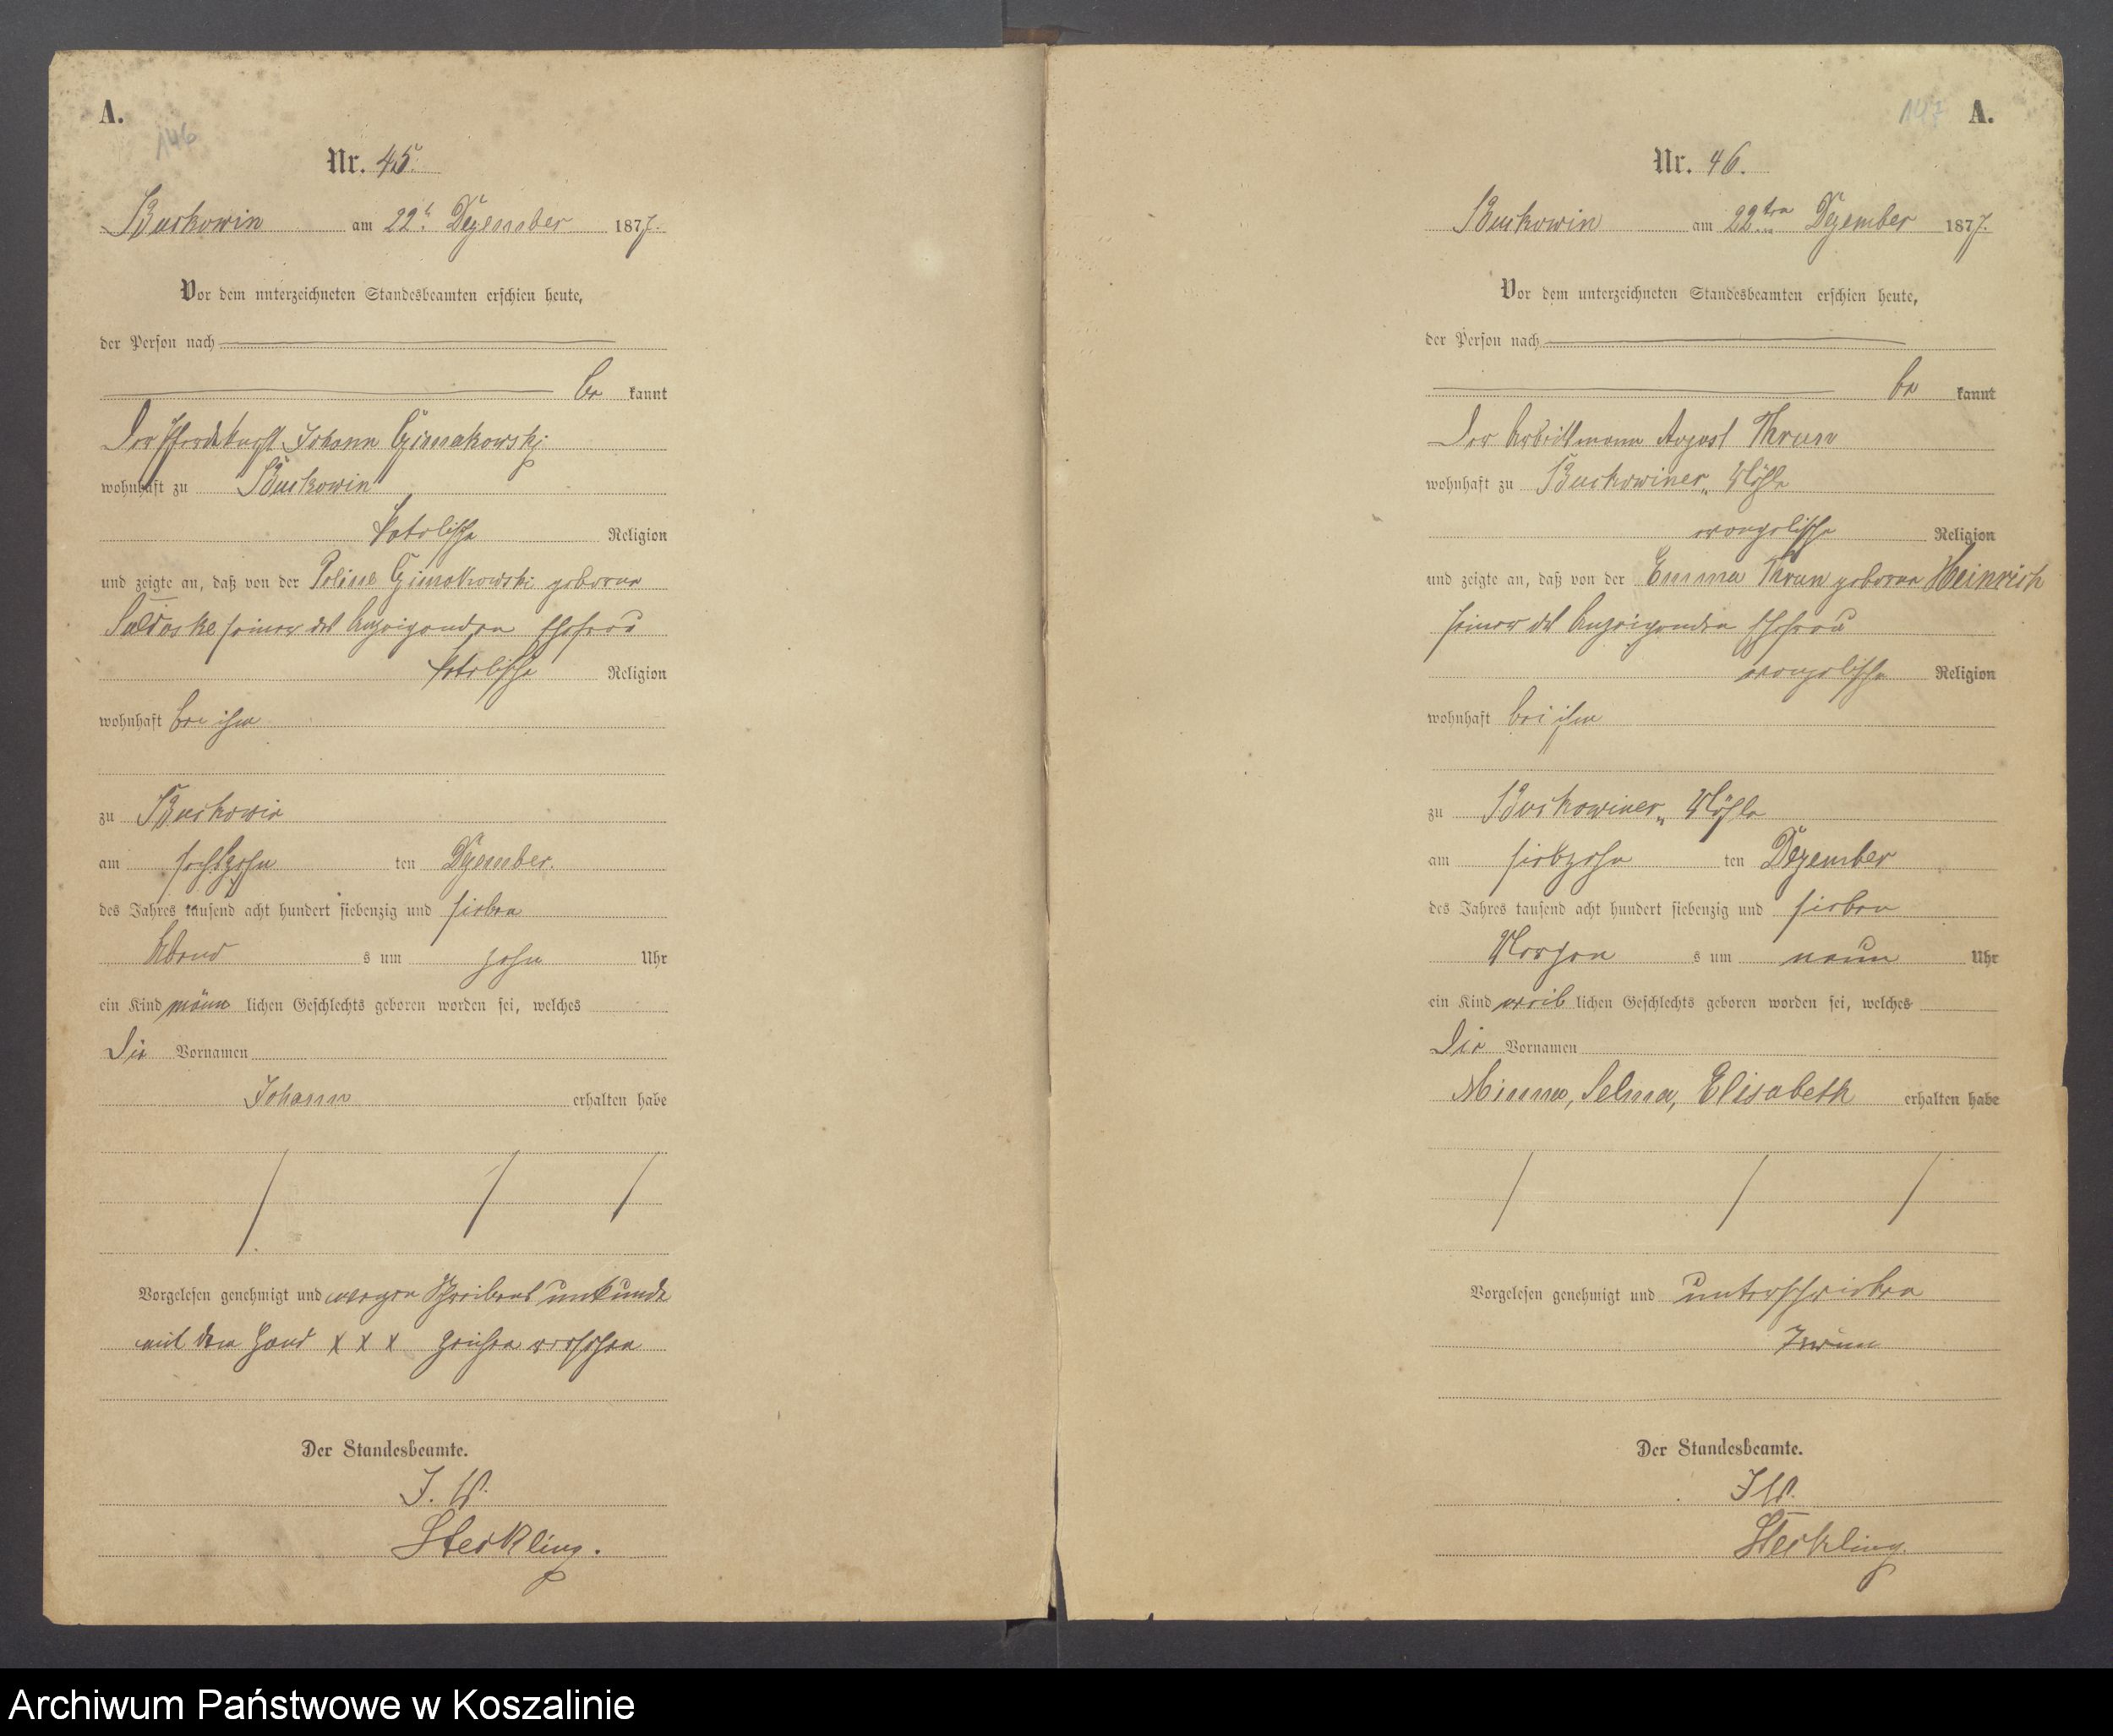 A.
146
Nr. 45.
Buckowin am 22t. Dezember 1877.
Vor dem unterzeichneten Standesbeamten erschien heute,
der Person nach
be kannt
Der Pferdeknecht Johann Czimakowski
wohnhaft zu Buckowin
katolischer Religion
und zeigte an, daß von der Poline Czimakowski geborene
seiner des Anzeigenden Ehefrau
katolischer Religion
wohnhaft bei ihm
zu Buckowin
am sechszehn ten Dezember.
des Jahres tausend acht hundert siebenzig und sieben
Abend s um zehn Uhr
ein Kind männ lichen Geschlechts geboren worden sei, welches
die Vornamen
Johann erhalten habe
Vorgelesen genehmigt und wegen Schreibens unkunde
mit dem Hand x x x Zeichen versehen
Der Standesbeamte.
I. V.
Steckling.
147
A.
Nr. 46.
Buckowin am 22ten Dezember 1877.
Vor dem unterzeichneten Standesbeamten erschien heute,
der Person nach
be kannt
Der Arbeitsmann August Thrun
wohnhaft zu Buckowiner Mühle
evangelischer Religion
und zeigte an, daß von der Emma Thrun geborene Heinrich
seiner des Anzeigenden Ehefrau
evangelischer Religion
wohnhaft bei ihm
zu Buckowiner Mühle
am siebzehn ten Dezember
des Jahres tausend acht hundert siebenzig und sieben
Morgen s um neun Uhr
ein Kind weib lichen Geschlechts geboren worden sei, welches
die Vornamen
Minna, Selma, Elisabeth erhalten habe
Vorgelesen genehmigt und unterschrieben
Der Standesbeamte.
I. V.
Steckling.
Archiwum Państwowe w Koszalinie